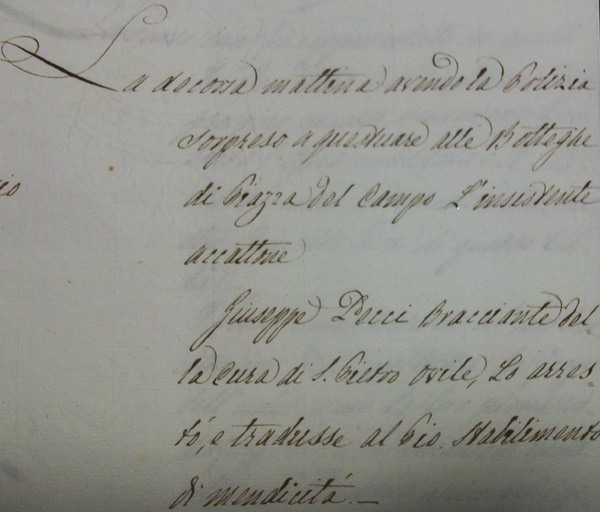 La decorsa mattina avendo la Polizia
sorpreso a questuare alle Botteghe
di Piazza del Campo L'insistente
accattone
Giuseppe Pecci Bracciante del-
la Cura di S. Pietro Ovile, Lo arres-
tò, e tradusse al Pio. Stabilimento
di mendicità. —